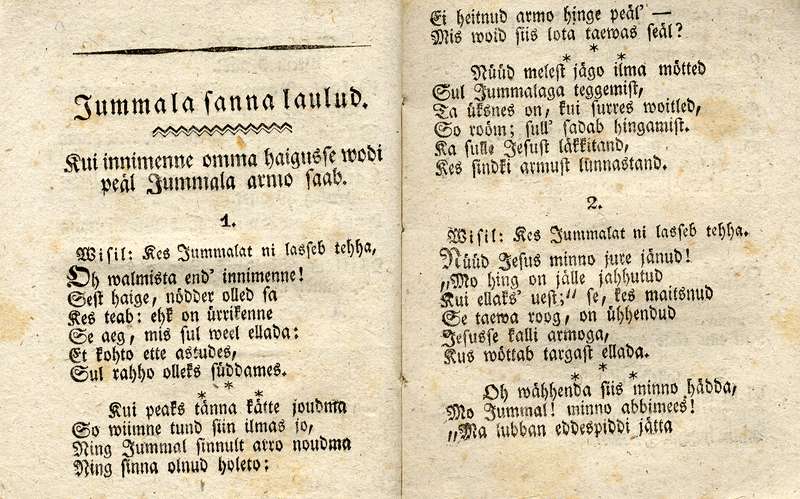 Jummala sanna laulud.
Kui innimenne omma haigusse wodi
peäl Jummala armo saab.
1.
Wisil: Kes Jummalat ni lasseb tehha,
Oh walmista end’ innimenne!
Sest haige, nödder olled sa
Kes teab: ehk on ürrikenne
Se aeg, mis sul weel ellada:
Et kohto ette astudes,
Sul rahho olleks süddames.
* * *
Kui peaks tänna kätte joudma
So wiimne tund siin ilmas jo,
Ning Jummal sinnult arro noudma
Ning sinna olnud holeto;
Ei heitnud armo hinge peäl’ —
Mis woid siis lota taewas seäl?
* * *
Nüüd melest jägo ilma mötted
Sul Jummalaga teggemist,
Ta üksnes on, kui surres woitled,
So rööm; sull’ sadab hingamist.
Ka sulle Jesust läkkitand,
Kes sindki armust lunnastand.
2.
Wisil: Kes Jummalat ni lasseb tehha.
Nüüd Jesus minno jure jänud!
„Mo hing on jälle jahhutud
Kui ellaks’ uest;“ se, kes maitsnud
Se taewa roog, on ühhendud
Jesusse kalli armoga,
Kus wöttab targast ellada.
* * *
Oh wähhenda siis minno hädda,
Mo Jummal! minno abbimees!
„Ma lubban eddespiddi jätta